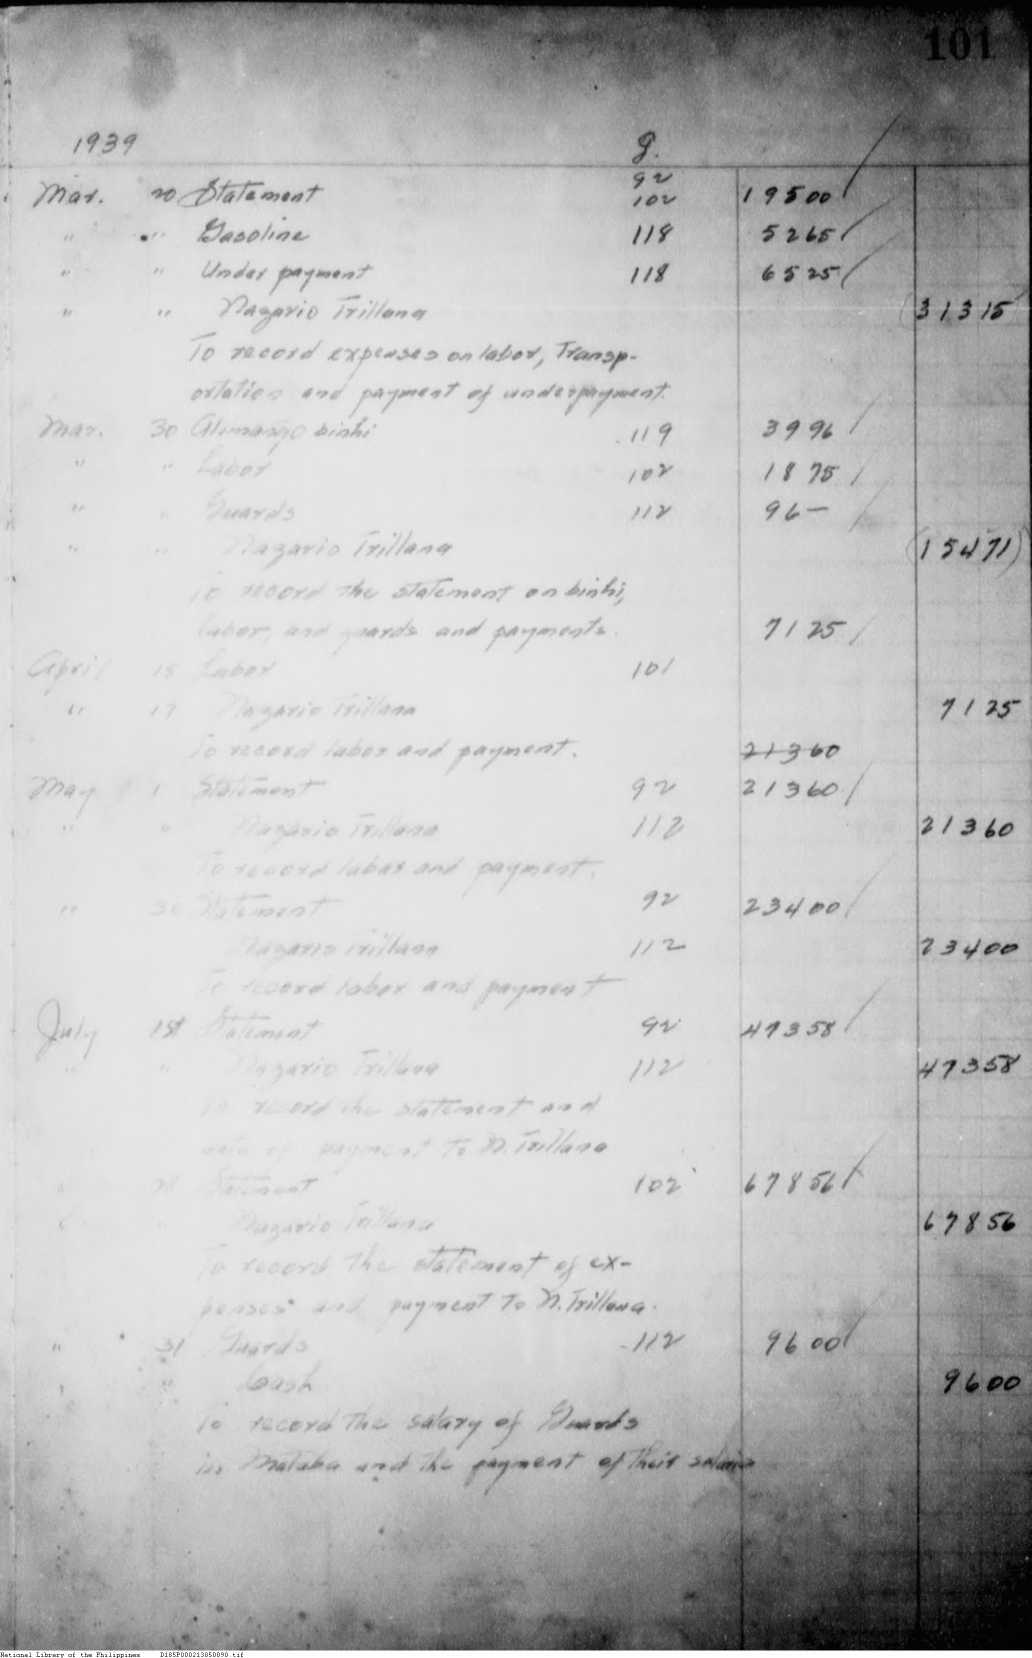 101
1939 g.
92
Mar. 20 Statement 102 19500
" " Gasoline 118 5265
" " Under payment 118 6525
" " Nazario Trillana 31315
To record expenses on labor, Transp-
ortation and payment of underpayment.
Mar. 30 binhi 119 3996
" " Labor 102 1875
" " Guards 112 96—
" " Nazario Trillana (15471)
To record the statement on binhi,
labor, and guards and payments. 7125
April 15 Labor 101
" 17 Nazario Trillana 7125
To record labor and payment. 21360
May 1 Statement 92 21360
" " Nazario Trillana 112 21360
To record labor and payment.
" 30 Statement 92 23400
Nazario Trillana 112 23400
To record labor and payment
July 1st Statement 92 47358
" " Nazario Trillana 112 47358
To record the statement and
of payment to N. Trillana
Statement 102 67856
Nazario Trillana 67856
To record the statement of ex-
penses and payment to N. Trillana.
" 31 Guards 112 9600
" Cash 9600
To record the salary of Guards
in Mataba and the payment of their salaries
National Library of the Philippines D185P000213850090.tif